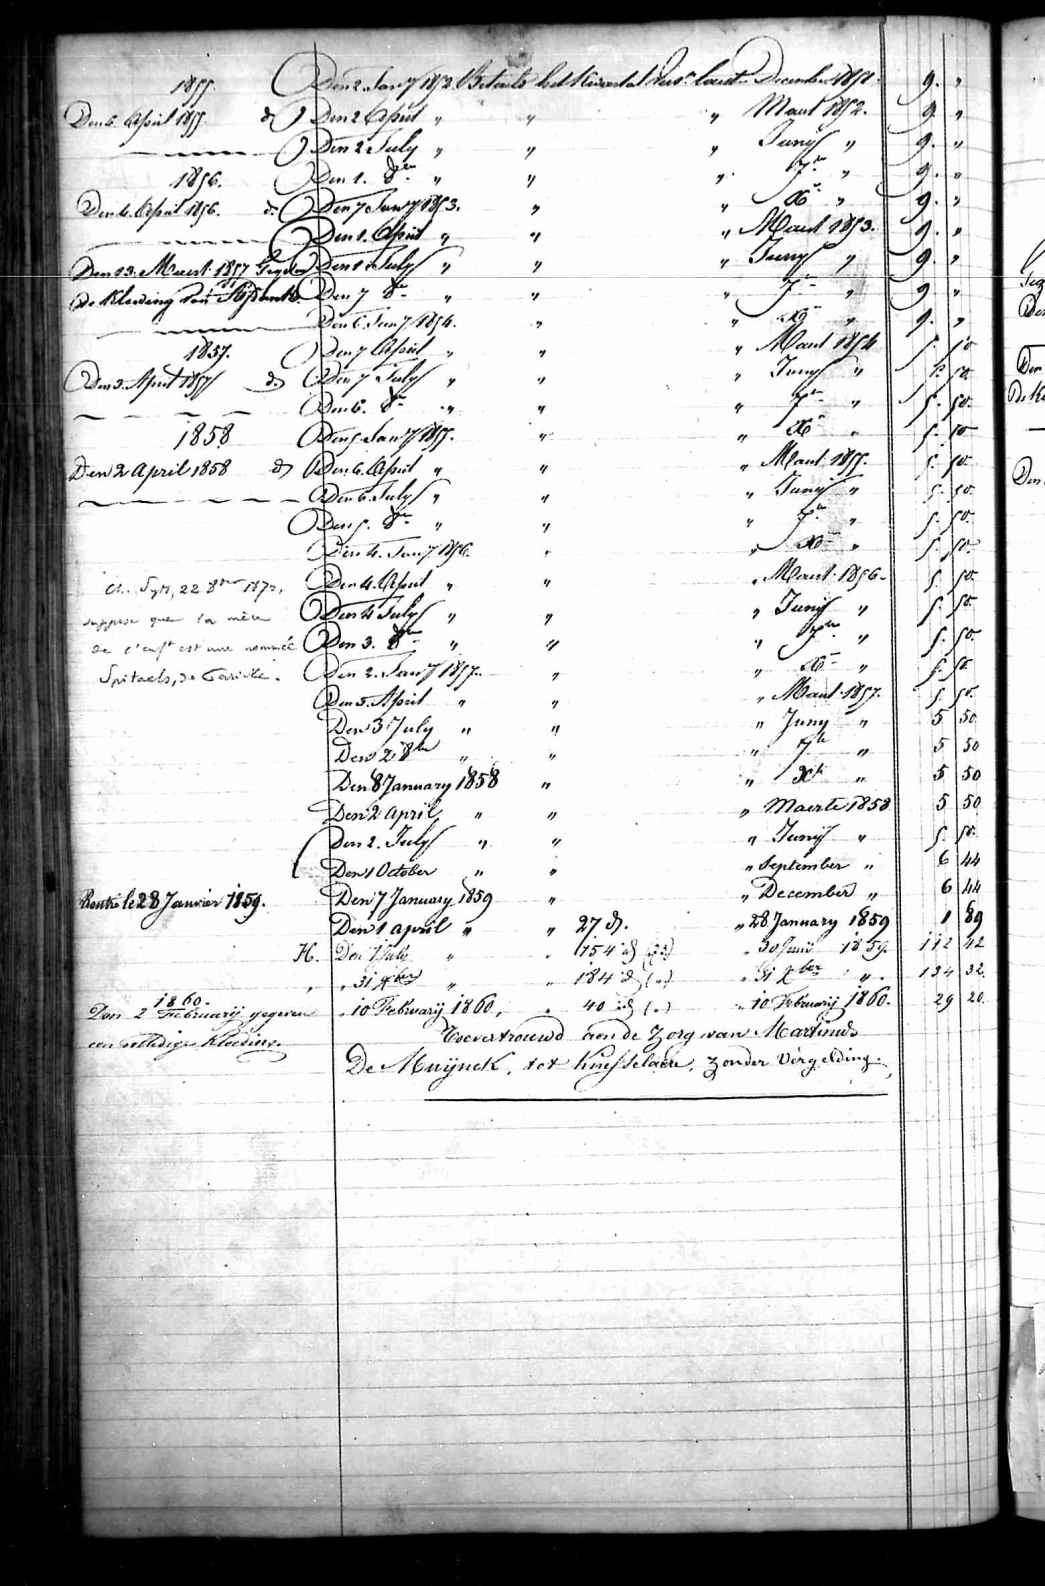 1855. Den 2 Janry 1852 Betaelt het Kwartal December 1851. 9. "
Den 6. April 1855 do Den 2 April " " " Maart 1852. 9. "
Den 2 July " " " Junij " 9. "
1856. Den 1. 8re " " " 7re " 9. "
Den 4. April 1856. do Den 7 Janry 1853. " " Xre " 9. "
Den 1. April " " " Maart 1853. 9. "
Den 13. Maert 1857 Gegeven Den 1 July " " " Junij " 9. "
De Kleeding van Den 7 8re " " " 7re " 9. "
Den 6. Janry 1854. " " Xre " 9. "
1857. Den 7 April " " " Maart 1854 5. 50
Den 3. April 1857 do Den 7 July " " " Junij " 5. 50
Den 6. 8re " " " 7re " 5. 50.
1858 Den 5. Janry 1855. " " Xre " 5. 50
Den 2 April 1858 do Den 6. April " " " Maart 1855. 5. 50.
Den 6. July " " " Junij " 5. 50.
Den 5. 8re " " " 7re " 5. 50.
Den 4. Janry 1856. " " Xre " 5. 50.
Ch. 22 8bre 1872, Den 4. April " " " Maart 1856. 5. 50.
suppose que la mère Den 4 July " " " Junij " 5. 50.
de l'enft est une nommée Den 3. 8re " " " 7re " 5. 50.
Spitaels, de Den 2. Janry 1857. " " Xre " 5. 50
Den 3. April " " " Maart 1857. 5. 50.
Den 3 July " " " Juny " 5 50
Den 2 8bre " " " 7bre " 5 50
Den 8 January 1858 " " Xbre " 5 50
Den 2 April " " " Maerte 1858 5 50
Den 2. July " " " Junij " 5. 50.
Den 1 October " " " September " 6 44
Rentré le 28 Janvier 1859. Den 7 January 1859 " " December " 6 44
Den 1 april " " 27 d. " 28 January 1859 1 89
H. Den 1 July " " 154 id (73) " 30 Junij 1859. 112 42
" " 31 Xber " " 184 id (") " 31 Xber " 134 32.
1860.
Den 2 Februarij gegeven " 10 Februarij 1860, " 40 id (") " 10 Februarij 1860. 29 20.
een volledige kleeding. Toevertrouwd aen de zorg van Martinus
De Muijnck, tot Knesselaere, zonder vergelding.